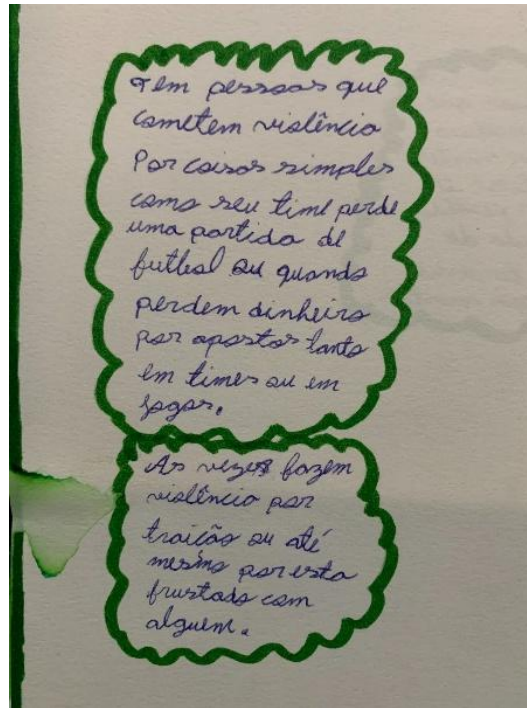 Tem pessoas que
cometem violência
Por coisas simples
como seu time perde
uma partida de
futbol ou quando
perdem dinheiro
por apostas tanto
em times ou em
jogos.
As vezes fazem
violência por
traição ou até
mesmo por esta
frustado com
alguem.